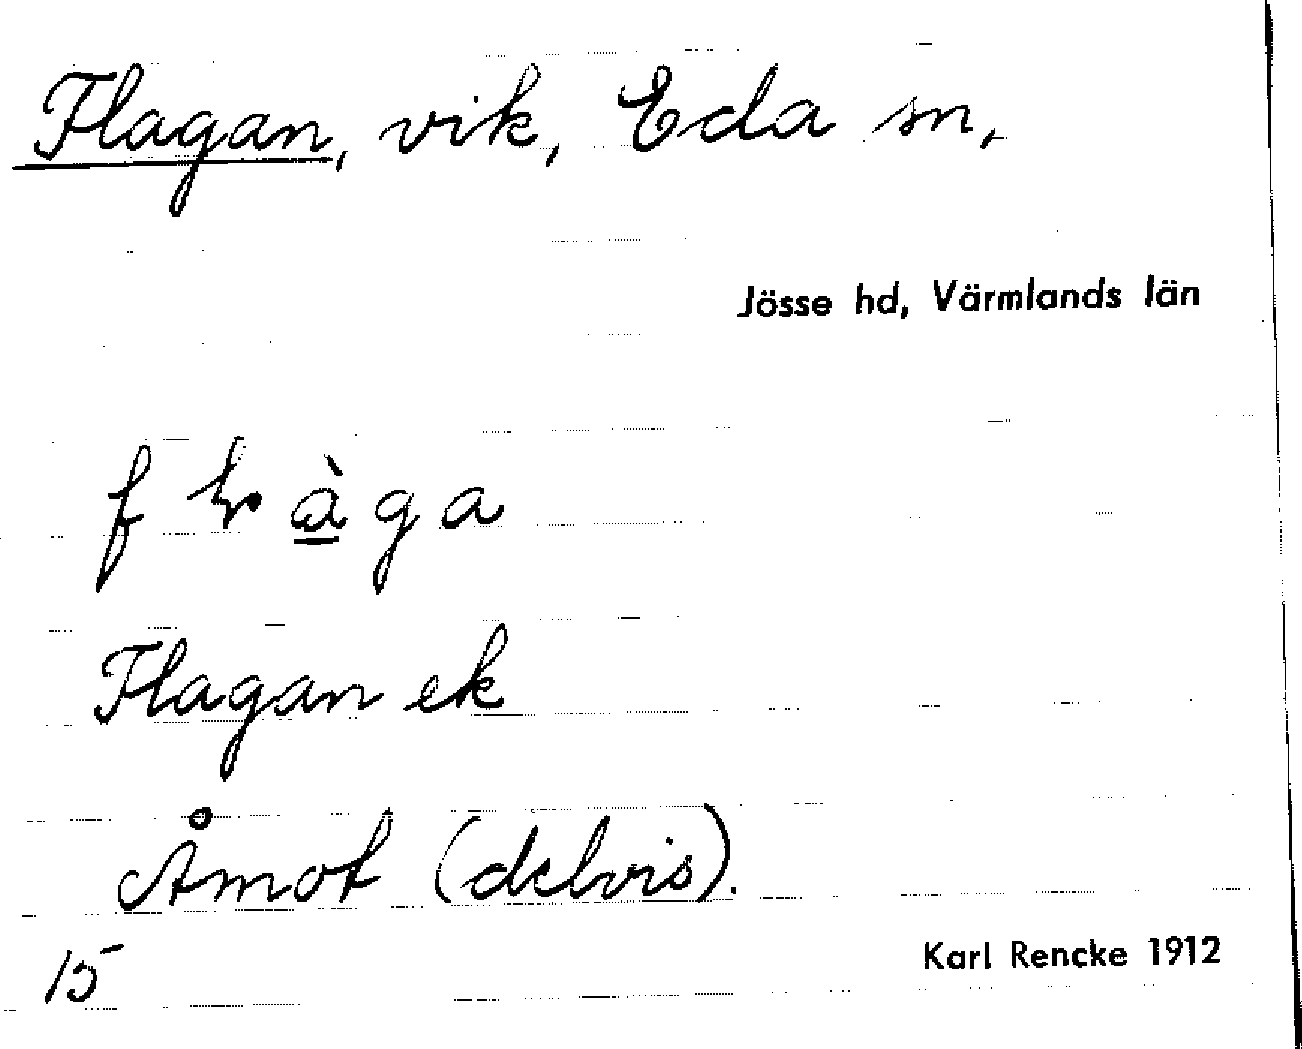 Flagan, vik, Eda sn,
Jösse hd, Värmlands län
f ɽ à g a
Flagan ek
Åmot (delvis).
15
Karl Rencke 1912